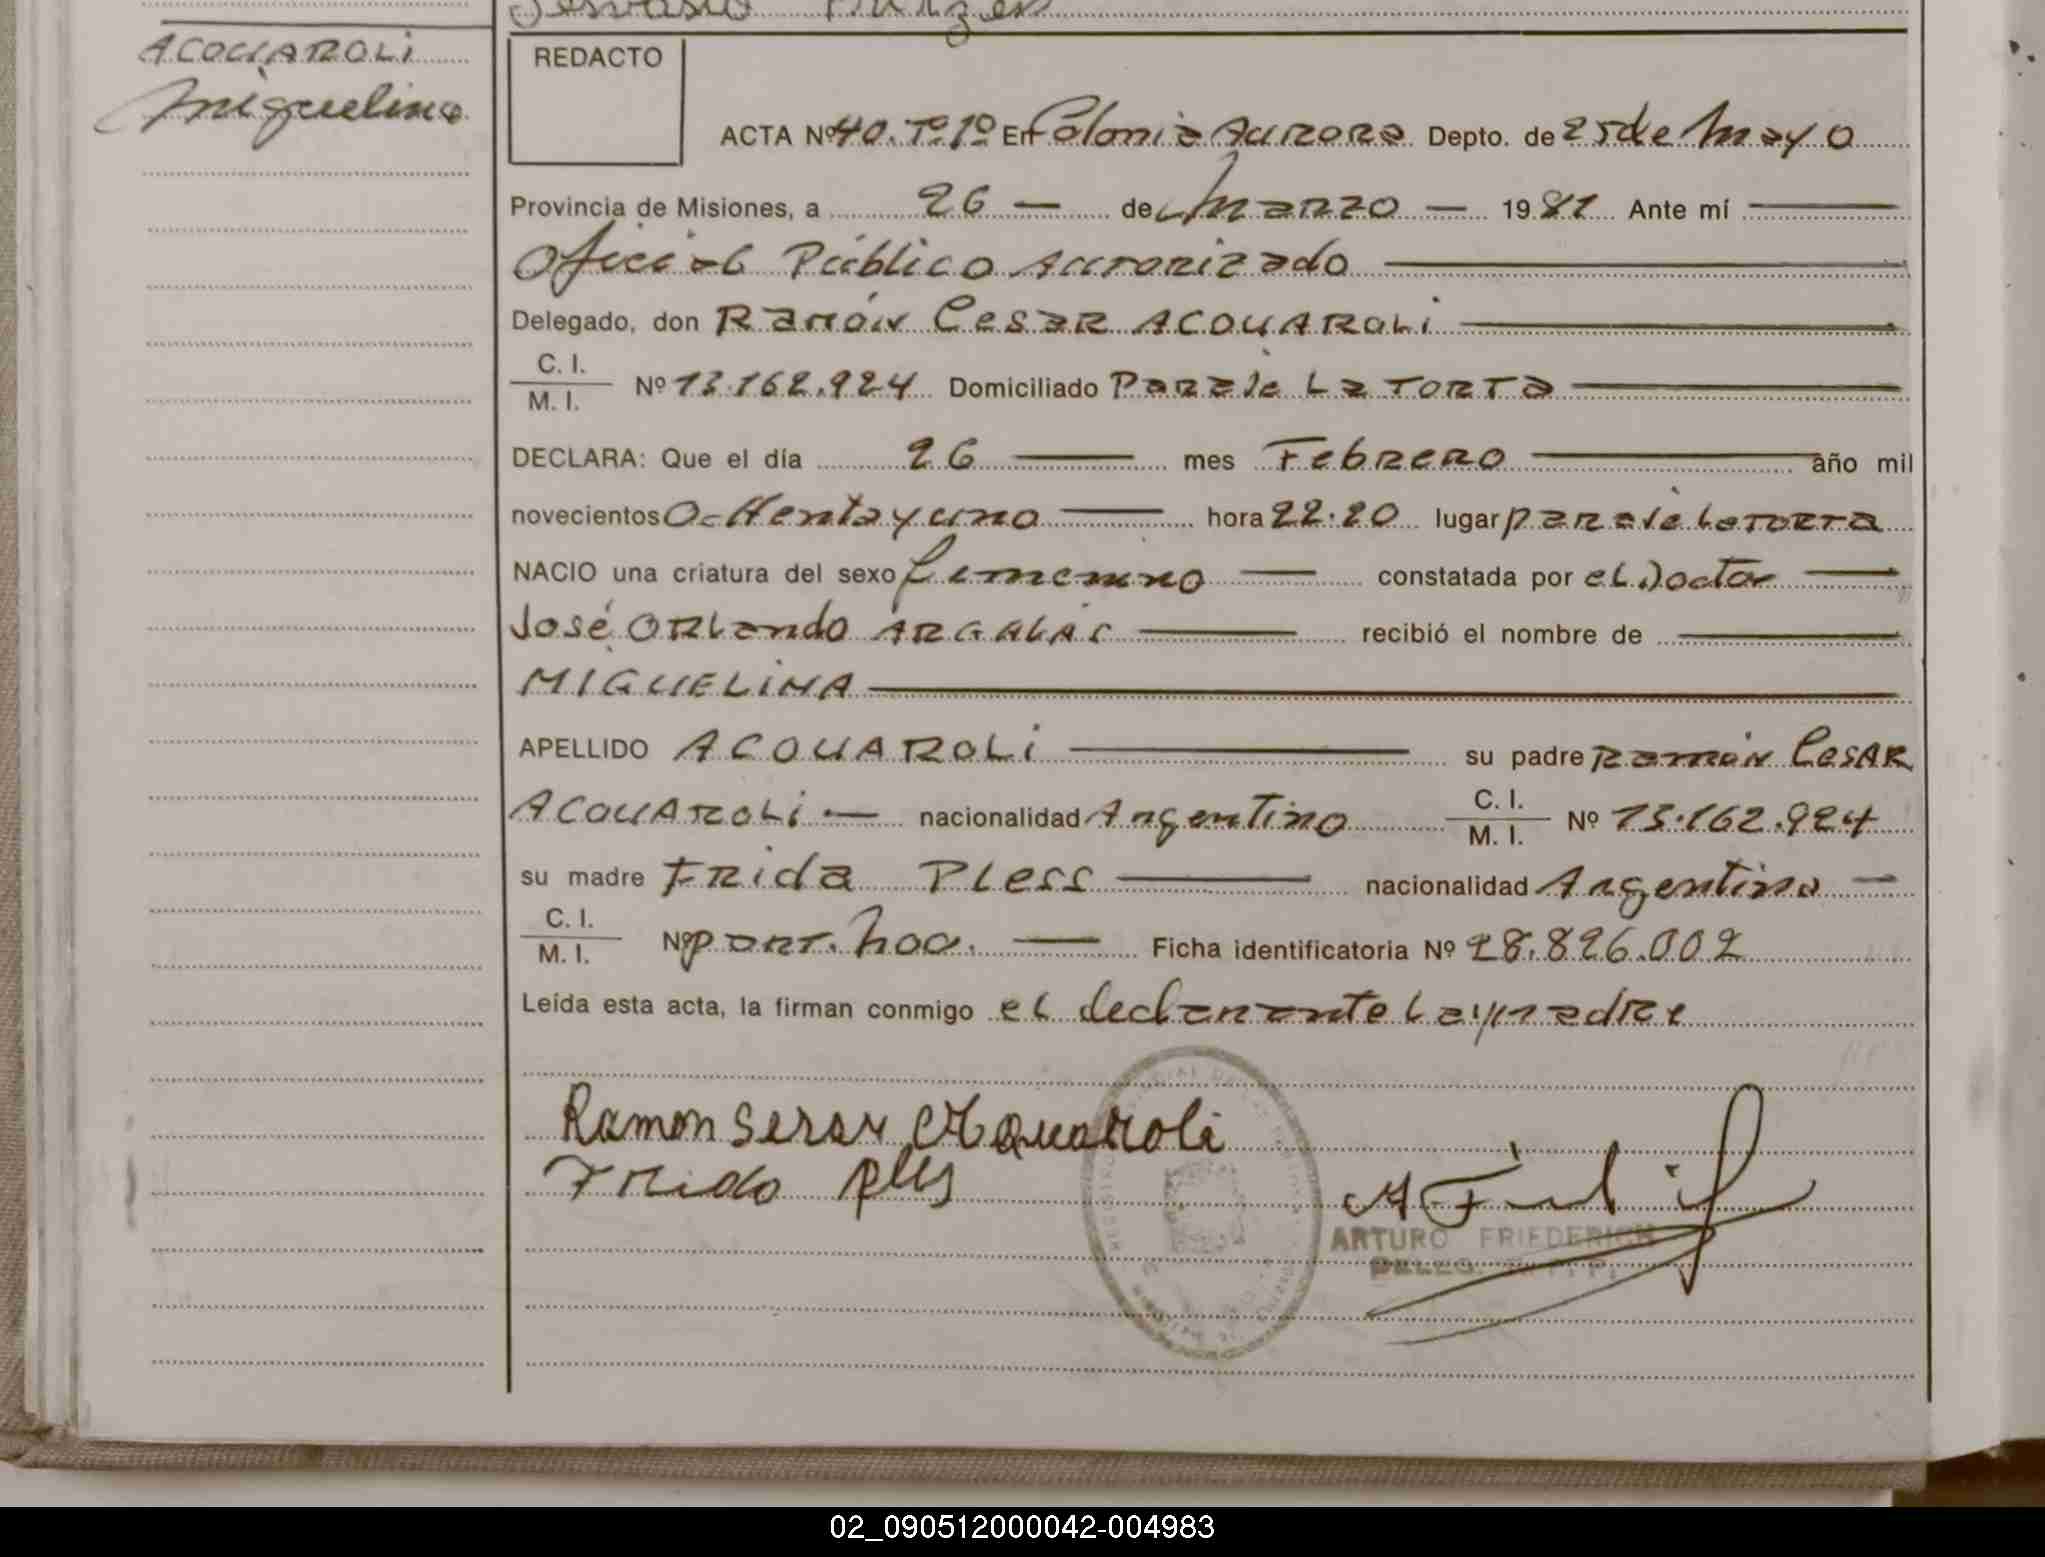 ACOUAROLI
Miguelina
REDACTO
ACTA Nº 40. Tº 1º En Colonia Aurora Depto. de 25 de Mayo
Provincia de Misiones, a 26 — de Marzo — 1981 Ante mí —
Oficial Público Autorizado —
Delegado, don Ramón Cesar ACOUAROLI —
C. I.
M. I. Nº 13.162.924 Domiciliado Paraje La Torta —
DECLARA: Que el día 26 — mes Febrero — año mil
novecientos Ochenta y uno — hora 22.20 lugar paraje La Torta
NACIO una criatura del sexo femenino — constatada por el Doctor —
José Orlando — recibió el nombre de —
MIGUELINA —
APELLIDO ACOUAROLI — su padre Ramón Cesar
ACOUAROLI — nacionalidad Argentino C. I.
M. I. Nº 13.162.924
su madre Frida Pless — nacionalidad Argentina —
C. I.
M. I. Nº part. nac. — Ficha identificatoria Nº 28.826.002
Leída esta acta, la firman conmigo el declarante La y madre
Ramon Sesar Aquaroli
Frida Ples
ARTURO FRIEDERICH
02_090512000042-004983